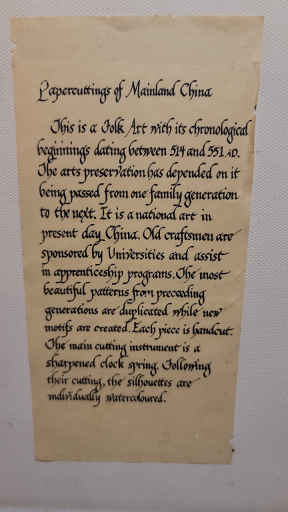 Papercuttings of Mainland China
This is a Folk Art with its chronological
beginnings dating between 514 and 551 A.D.
The arts preservation has depended on it
being passed from one family generation
to the next. It is a national art in
present day China. Old craftsmen are
sponsored by Universities and assist
in apprenticeship programs. The most
beautiful patterns from preceeding
generations are duplicated while new
motifs are created. Each piece is handcut.
The main cutting instrument is a
sharpened clock spring. Following
their cutting, the silhouettes are
individually watercoloured.